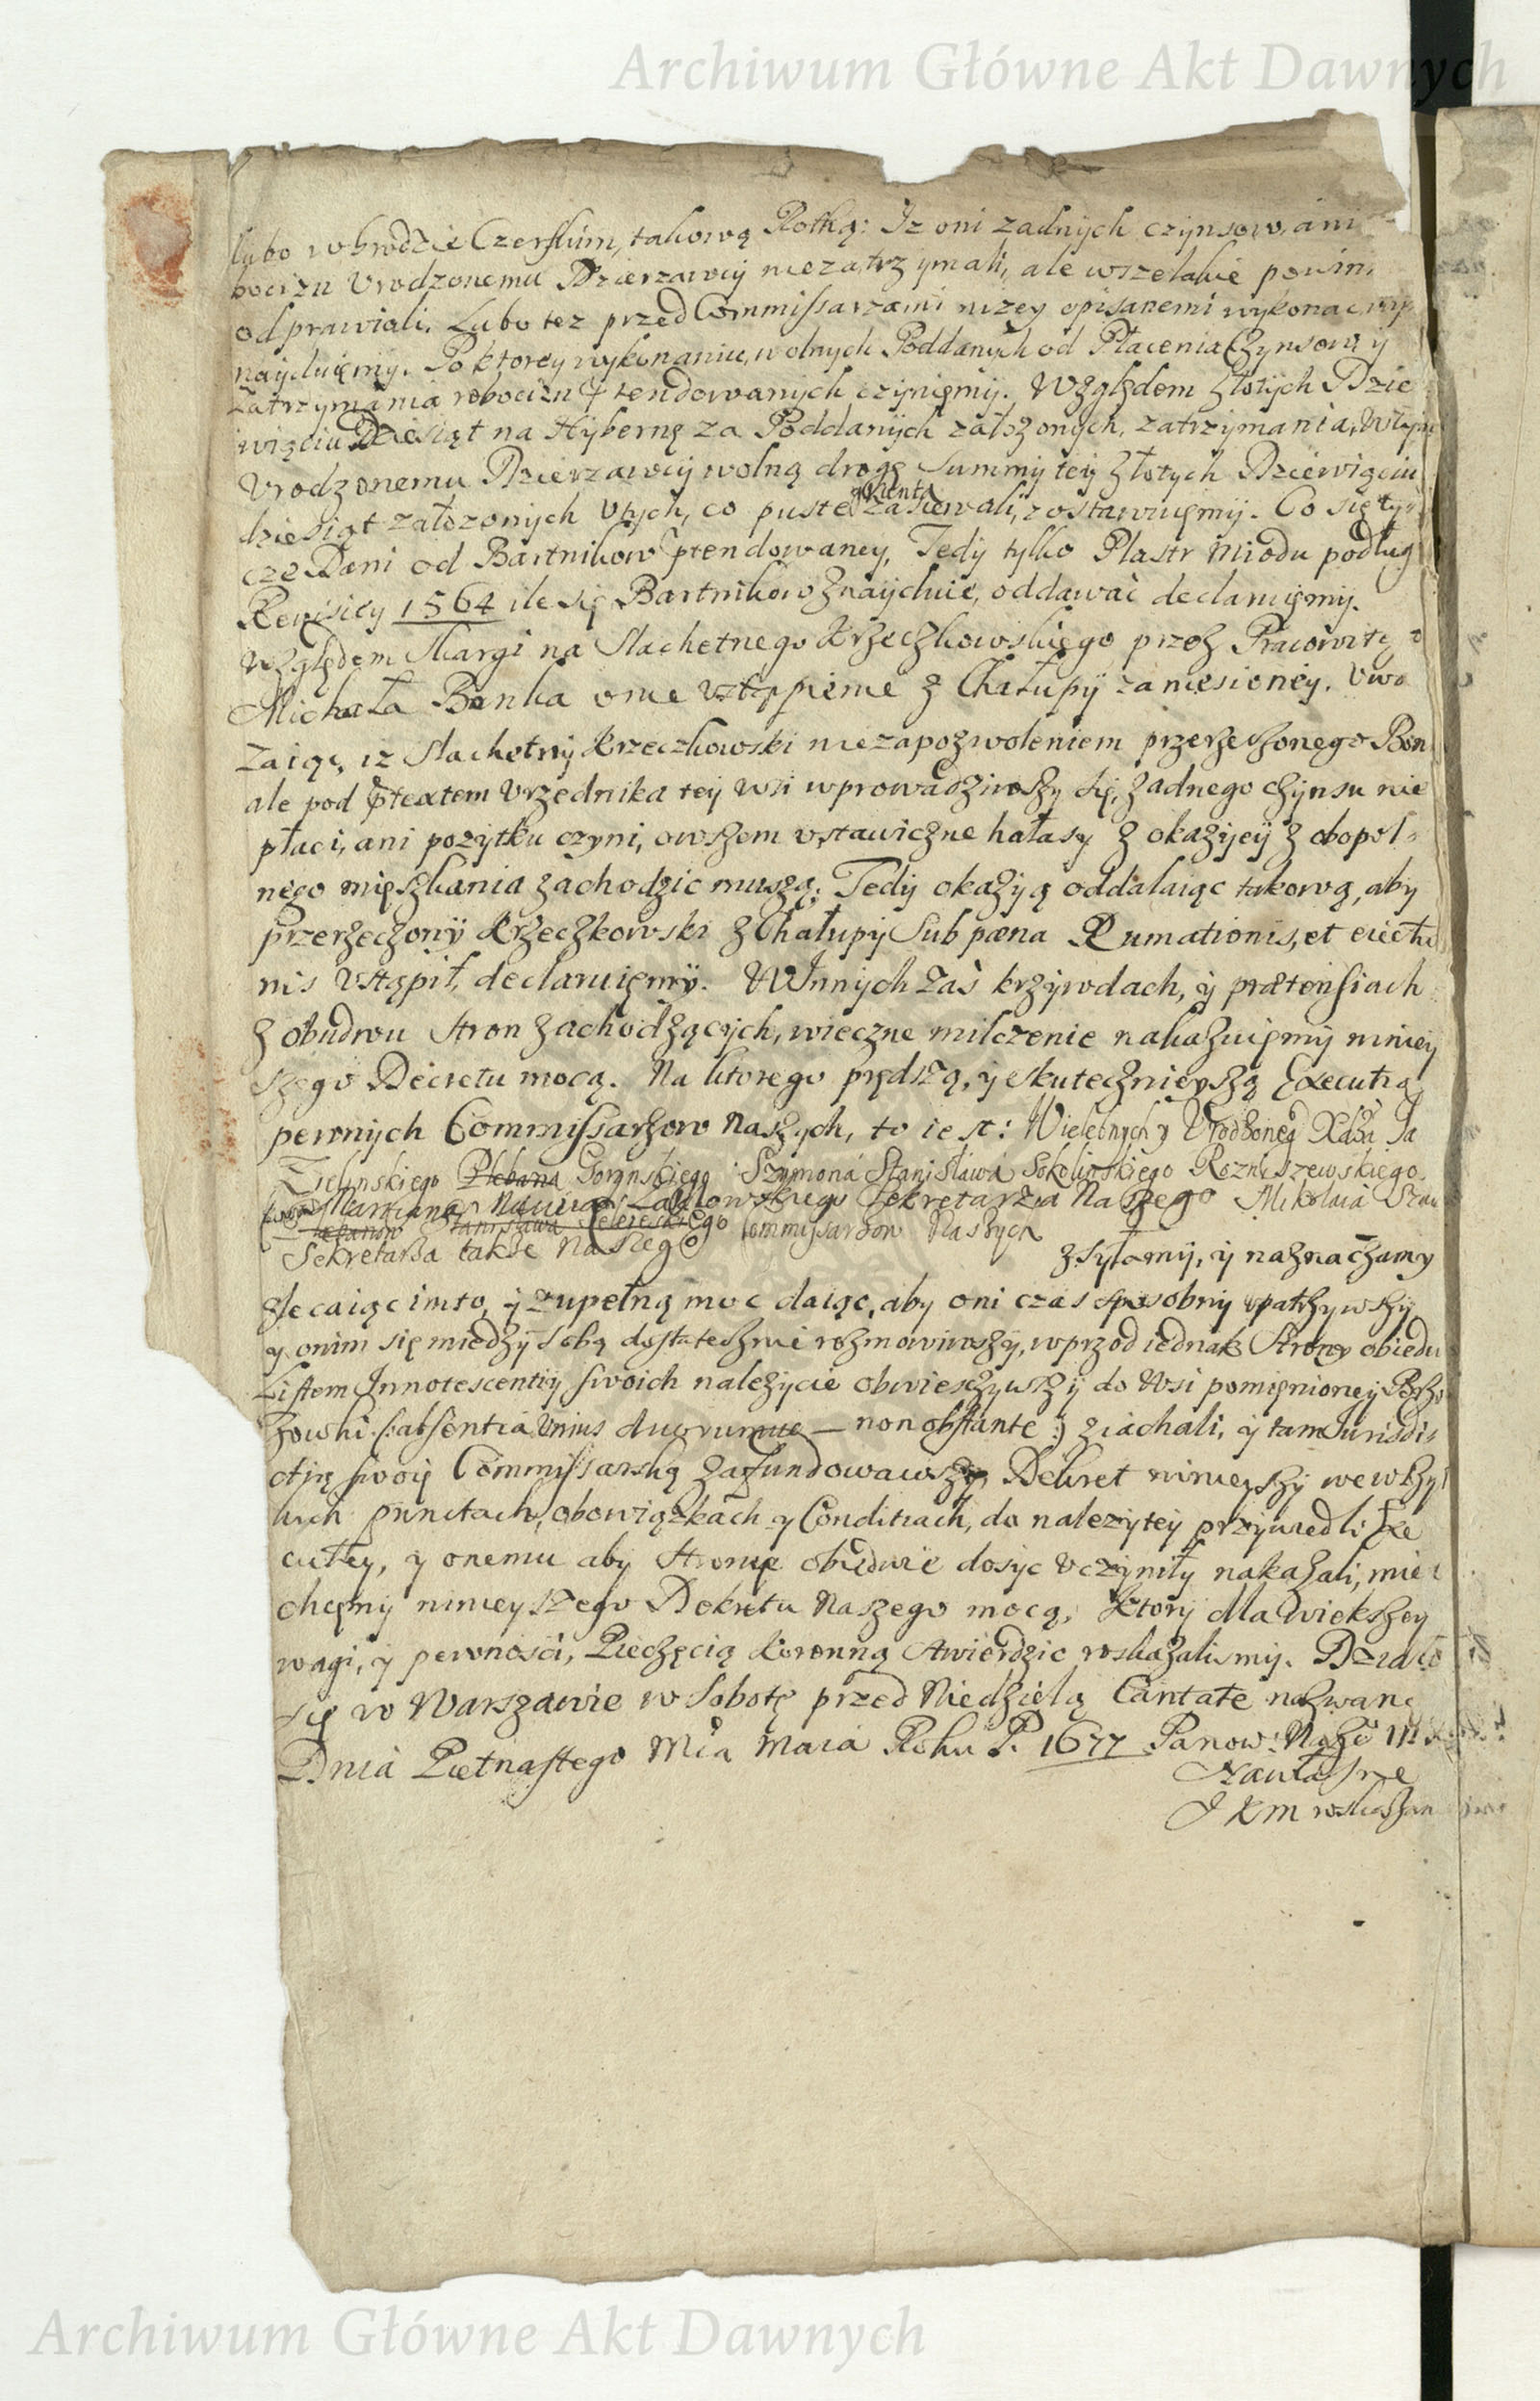 Archiwum Główne Akt Dawnych
lubo w Grodzie Czerskim, takową Rotką: Iz oni zadnych czynszow, ani
bocizn Vrodzonemu Dzierzawcy niezatrzymali, ale wszelakie powin
odprawiali. Lubo tez przed Commissarzami nizey opisanemi wykonac
nayduięmy. Po ktorey wykonaniu, wolnych Poddanych od Płacenia Czynszow, y
zatrzymania robocizn ptendowanych czynięmy. Względem złotych Dzie
więciu Dziesiąt na Hybernę za Poddanych załozonych, zatrzymania,
Vrodzonemu Dzierzawcy wolną drogę Summy tey złotych Dziewięciu
dziesiąt załozonych Vtych, co puste grunta zasiewali, zostawuięmy. Co się ty
cze Dani od Bartnikow ptendowaney, Tedy tylko Plastr Miodu podług
Rewisiey 1564 ile się Bartnikow znayduie, oddawać declaruięmy.
Względem skargi na Slachetnego Krzeczkowskiego przez Pracowitego
Michała Bonka o nie vstąpienie z Chałupy zaniesioney. Vwa
zaiąc, iz Slachetny Krzeczkowski niezapozwoleniem przerzeczonego Bon
ale pod ptextem Vrzednika tey wsi wprowadziwszy się, zadnego czynsu nie
płaci, ani pozytku czyni, owszem vstawiczne hałasy z okazyey z obopol-
nego mięszkania zachodzic muszą. Tedy okazyą oddalaiąc takową, aby
przerzeczony Krzeczkowski z Chałupy Sub pæna Rumationis, et eiectio
nis Vstąpił, declaruięmy. W Innych zaś krzywdach, y prætensiach
z obudwu Stron zachodzących, wieczne milczenie nakazuięmy niniey
szego Decretu mocą. Na ktorego prędszą, y skutecznieyszą Executią,
pewnych Commissarzow Naszych, to iest: Wielebnych y Vrodzoneg Xdza Ja
Zielinskiego Plebana Gorynskiego Szymona Stanisława Sokolowskiego Rozniszewskiego
Sekretarza Naszego Mikolaia
Commissarzow Naszych
Sekretarza także Naszego zsyłamy, y naznaczamy
zlecaiąc imto, y zupełną moc daiąc, aby oni czas sposobny vpatrzywszy
y onim się miedzy sobą dostatecznie rozmowiwszy, wprzod iednak Strony obiedu
Listem Innotescentiy swoich nalezycie obwiesczywszy do Wsi pomięnioney
(: absentia Vnius duorumue — non obstante :) ziachali, y tam Iurisdi-
ctią swoię Commissarską zafundowawszy, Dekret ninieyszy we wszys
kich punctach, obowiązkach y Conditiach, do nalezytey przywiedli Exe
cutiey, y onemu aby Strony obiedwie dosyc vczyniły nakazali, miec
chcęmy ninieyszego Dekretu Naszego mocą. Ktory dla większey
wagi, y pewnosci, Pieczęcią Koronną stwierdzic roskazalismy. Działo
się w Warszawie w Sobotę przed Niedzielą Cantate nazwaną
Dnia Piętnastego Mca Maia Roku P. 1677 Panow: Nasze III
JKM
Archiwum Główne Akt Dawnych